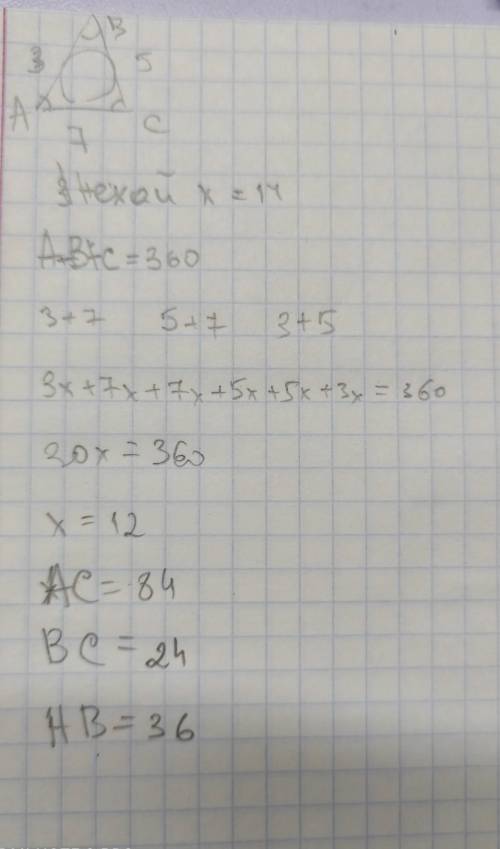 B
3 5
A C
7
Нехай x = 14
A+B+C = 360
3+7 5+7 3+5
3x+7x+7x+5x+5x+3x = 360
30x = 360
x = 12
AC = 84
BC = 24
AB = 36